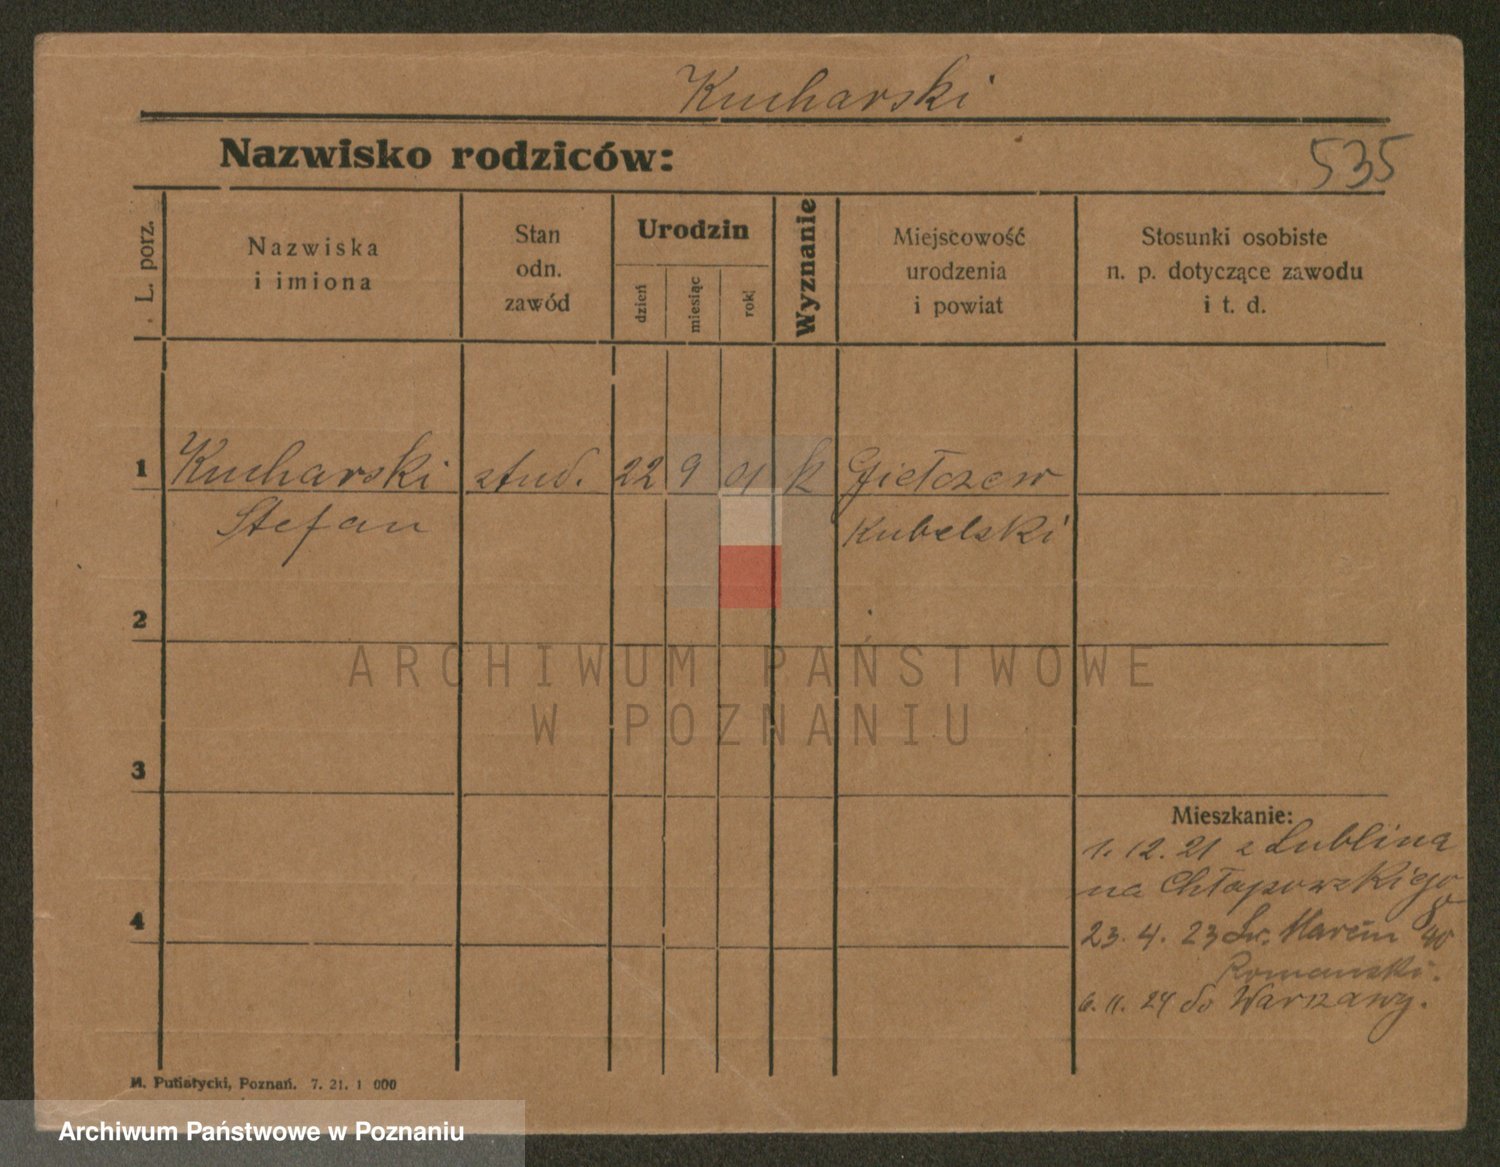 Kucharski
Nazwisko rodziców:
535
L. porz.
Nazwiska
i imiona
Stan
odn.
zawód
Urodzin
dzień
miesiąc
rok
Wyznanie
Miejscowość
urodzenia
i powiat
Stosunki osobiste
n. p. dotyczące zawodu
i t. d.
1 Kucharski stud. 22 9 01 k Giełczew
Stefan Kubelski
2
ARCHIWUM PAŃSTWOWE
W POZNANIU
3
Mieszkanie:
1. 12. 21 z Lublina
na Chłapowskiego
4
23. 4. 23 Św. Marcin 40
Romanski.
6. 11. 24 do Warszawy.
M. Putiatycki, Poznań. 7. 21. 1 000
Archiwum Państwowe w Poznaniu